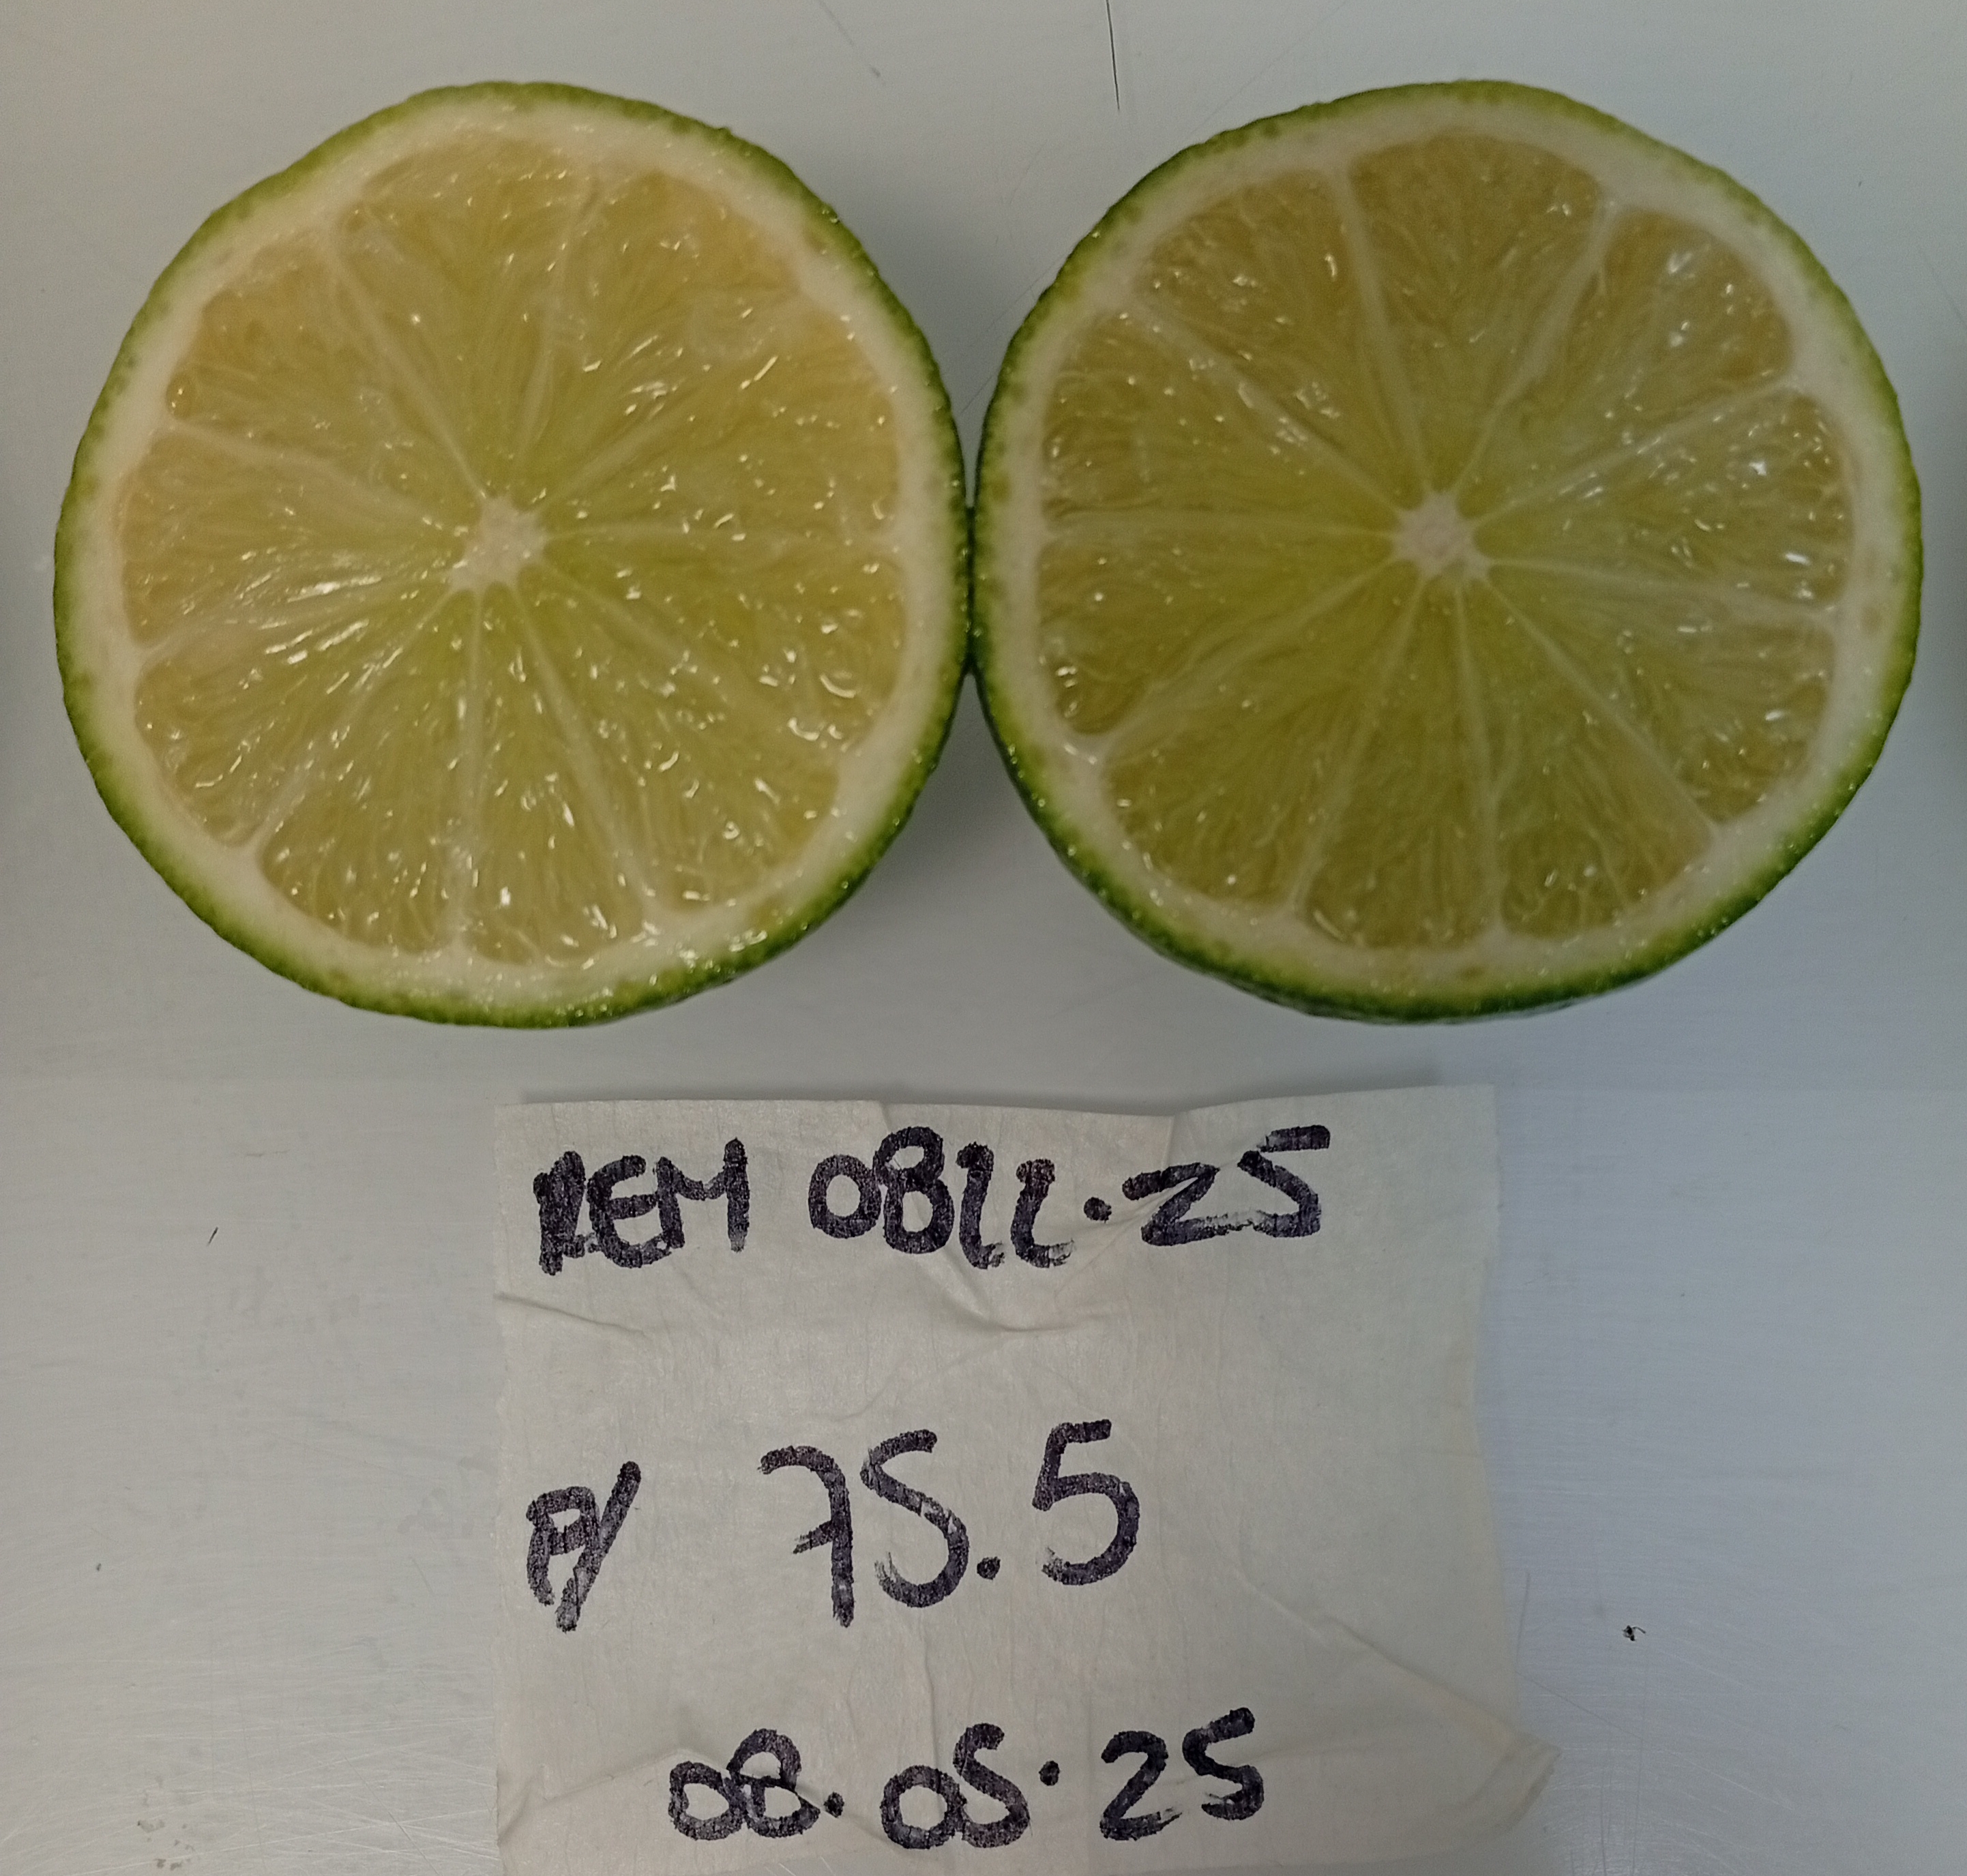 REM 0822.25
P/ 75.5
08.05.25